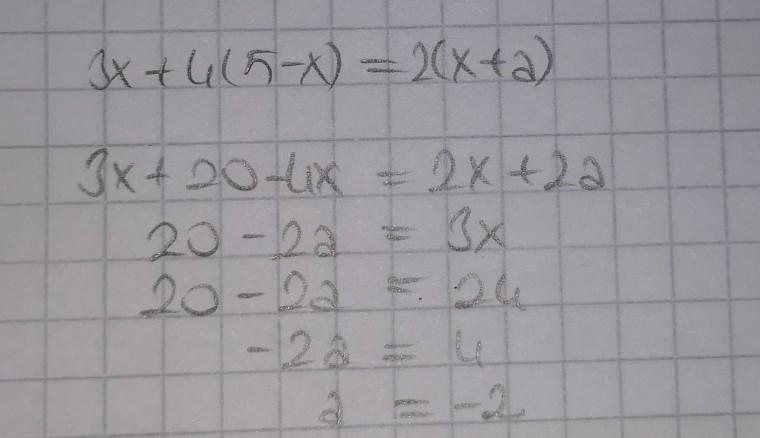 3x+4(5-x)=2(x+a)
3x+20-4x = 2x+2a
20-2a = 3x
20-2a = 24
-2a = 4
a = -2